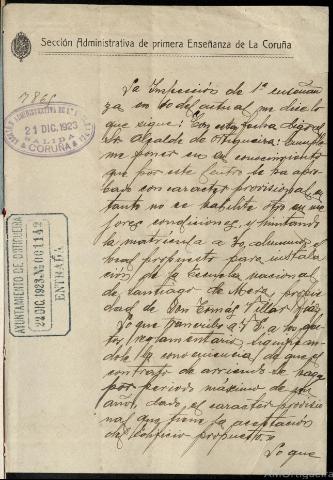 Sección Administrativa de primera Enseñanza de La Coruña
7865
SECCIÓN ADMINISTRATIVA DE 1ª
21 DIC. 1923
SALIDA
CORUÑA
AYUNTAMIENTO DE ORTIGUEIRA
24 DIC. 1923 № 001142
ENTRADA
La Inspección de 1ª enseñan
za en 10 del actual me dice lo
que sigue: Con esta fecha digo al
Sr. Alcalde de Ortigueira: Cumplo
me poner en su conocimiento
que por este Centro se ha apro
bado con caracter provisional, en
tanto no se habilite otro en me
jores condiciones, y limitando
la matricula a 30 alumnos el
local propuesto para instala
ción de la Escuela nacional
de Santiago de Mera, propie
dad de Don Tomás Villar
Lo que traslado a V. S. a los efec
tos reglamentarios significan
dole la conveniencia de que el
contrato de arriendo se haga
por periodo máximo de
años, dado el caracter provisio
nal que tiene la aceptación
del edificio propuesto.
Lo que
AMOrtigueira